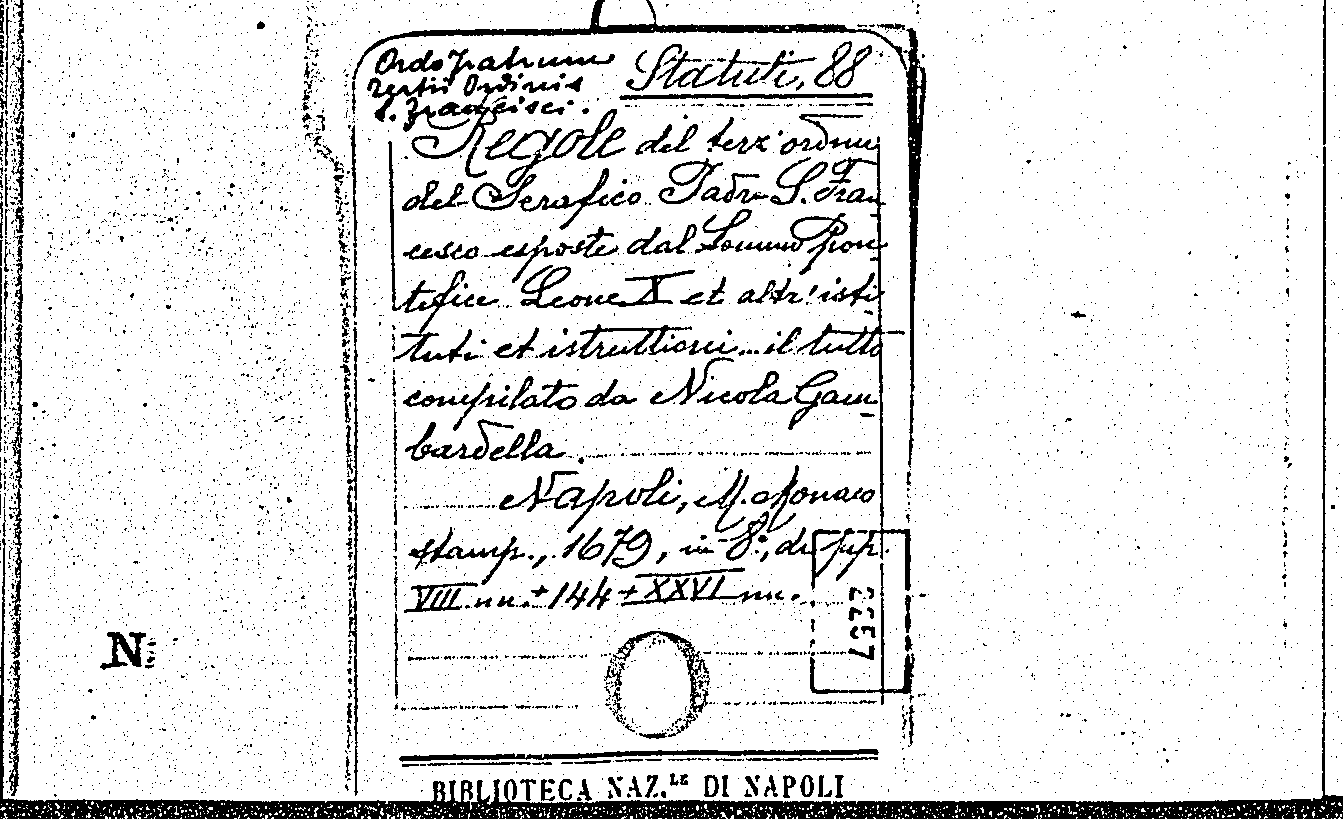 Ordo Fratrum
Tertii Ordinis
S. Francisci.
Statuti, 88
Regole del terz'ordine
del Serafico Padre S. Fran-
cesco esposte dal Sommo Pon-
tefice Leone X et altr'isti-
tuti et istruttioni... il tutto
compilato da Nicola Gam-
bardella.
Napoli, M. Monaco
stamp., 1679, in-8°, di pp.
VIII nn. + 144 + XXVI nn.
N
BIBLIOTECA NAZ.LE DI NAPOLI